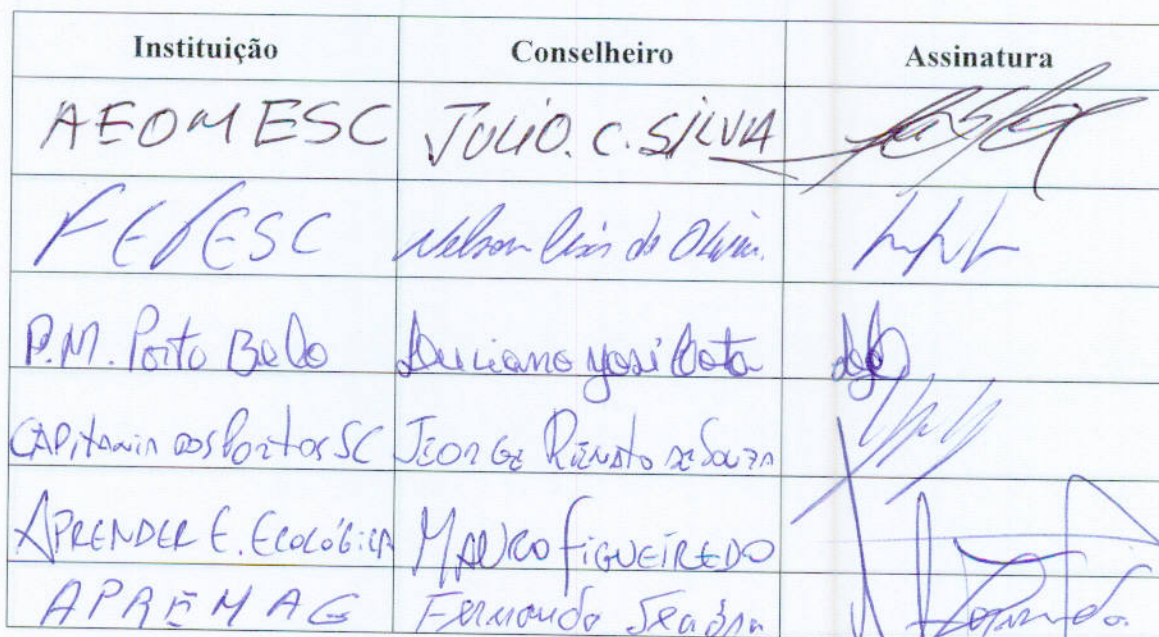 Instituição Conselheiro Assinatura
AEOMESC JULIO. C. SILVA
FEPESC Nelson de
P.M. Porto Belo Luciano José Cota
CAPITANIA DOS PORTOS SC JEORGE RENATO DE SOUZA
APRENDER E. ECOLÓGICA MAURO FIGUEIREDO
APREMAG Fernando Seabra